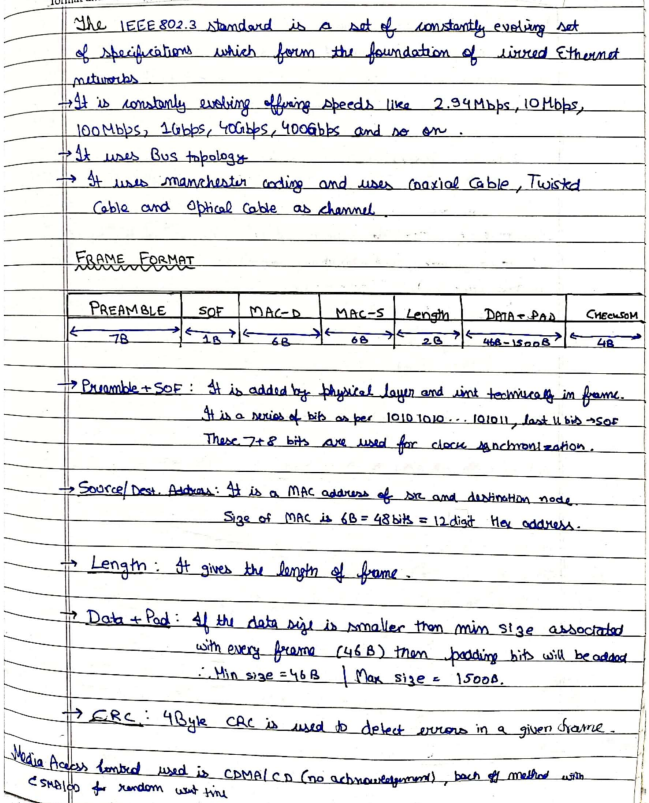 The IEEE 802.3 standard is a set of constantly evolving set
of specifications which form the foundation of wired Ethernet
networks.
→ It is constanly evolving offering speeds like 2.94Mbps, 10Mbps,
100Mbps, 1Gbps, 40Gbps, 400Gbps and so on.
→ It uses Bus topology
→ It uses manchester coding and uses Coaxial Cable, Twisted
Cable and Optical Cable as channel.
FRAME FORMAT
PREAMBLE SOF MAC-D MAC-S Length DATA + PAD CHECKSOM
7B 1B 6B 6B 2B 46B-1500B 4B
→ Preamble + SOF : It is added by physical layer and isnt technically in frame.
It is a series of bits as per 1010 1010... 101011, last 11 bits → SOF
These 7+8 bits are used for clock synchronization.
→ Source/Dest. Address: It is a MAC address of src and destination node.
Size of MAC is 6B = 48 bits = 12 digit Hex address.
→ Length : It gives the length of frame.
→ Data + Pad : If the data size is smaller than min size associated
with every frame (46 B) then padding bits will be added
∴ Min size = 46B | Max size = 1500B.
→ CRC : 4Byte CRC is used to detect errors in a given frame.
Media Access Control used is CDMA/CD (no acknowledgement), back off method with
CSMA/CD for random wait time